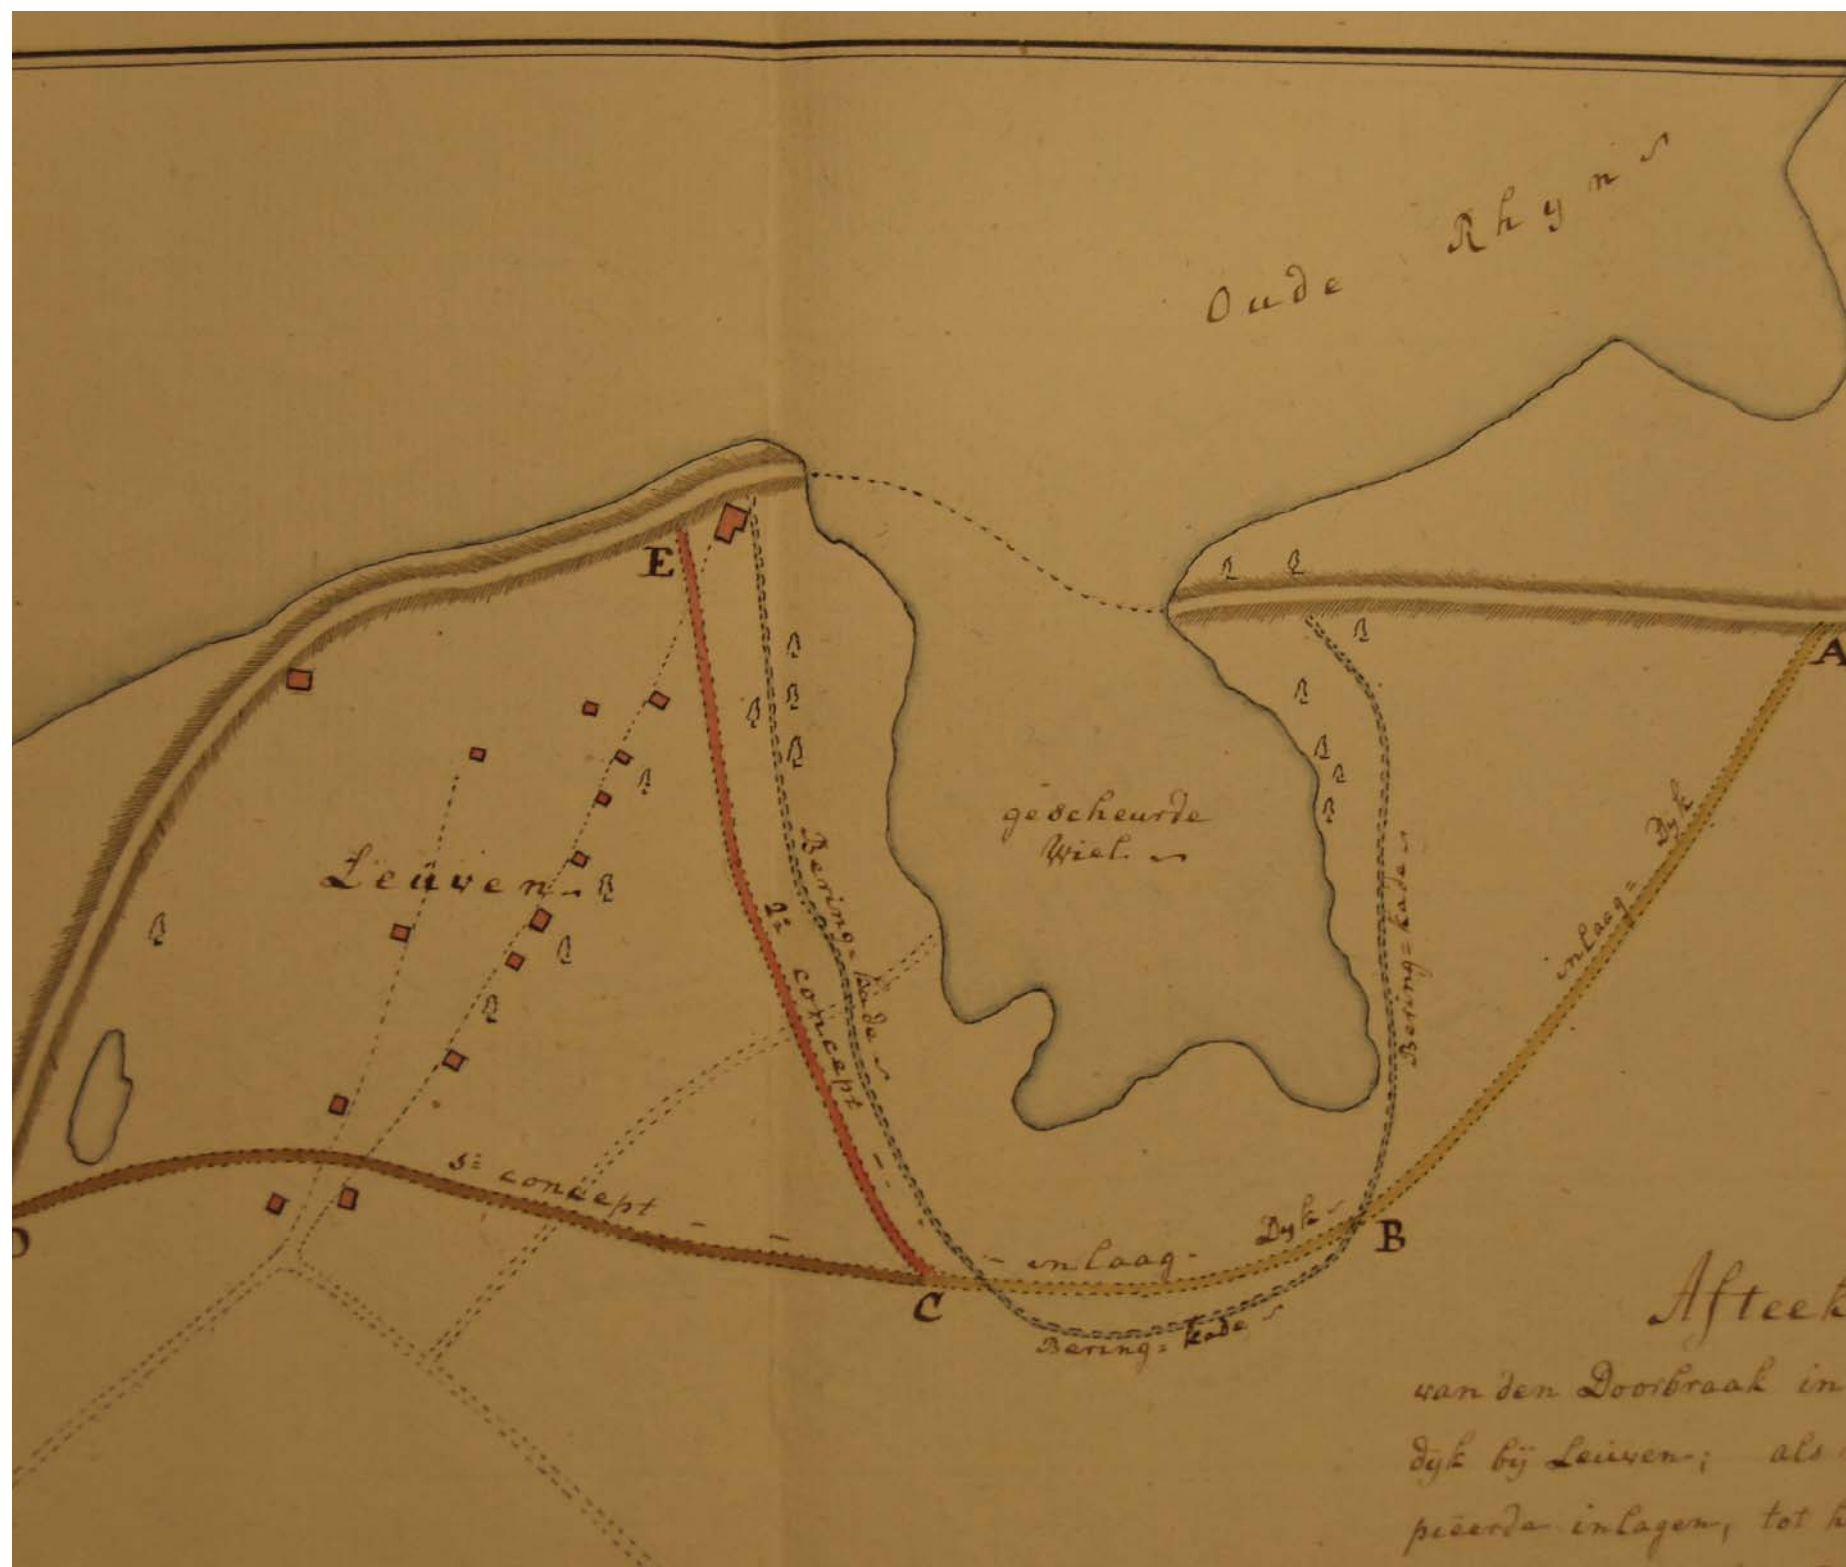 Oude Rhyn
E
A
gescheurde
Wiel
Dyk
inlaag=
Leuven
Bering=kade
Bering=kade
2e concept
3e concept
inlaag-
Dyk
B
D
C
Bering=kade
Afteek
van den Doorbraak in
dyk bij Leuven; als
pieerde inlagen, tot h